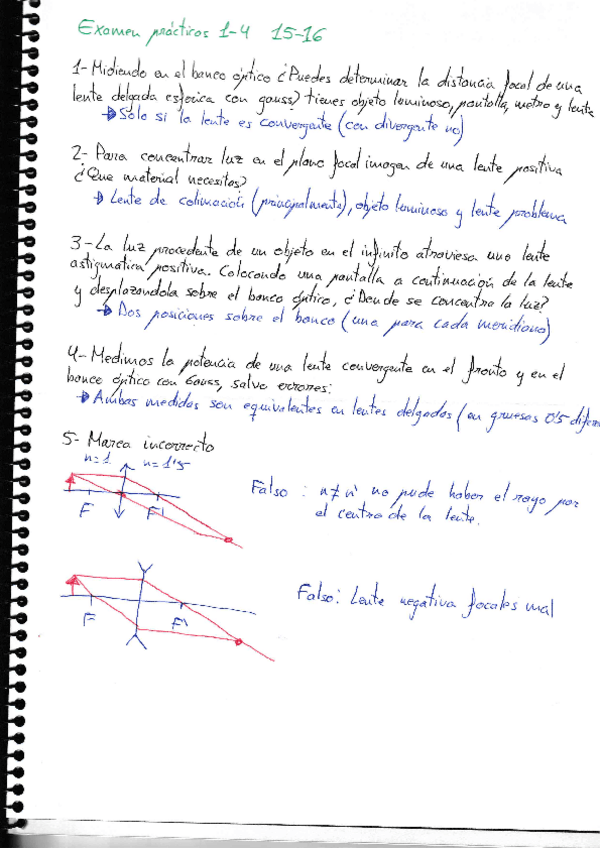 Examen prácticos 1-4 15-16
1- Midiendo en el banco óptico ¿Puedes determinar la distancia focal de una
lente delgada esférica con gauss? tienes objeto luminoso, pantalla, metro y lente
→ Sólo si la lente es convergente (con divergente no)
2- Para concentrar luz en el plano focal imagen de una lente positiva
¿Que material necesitas?
→ Lente de colimación (principalmente), objeto luminoso y lente problema
3- La luz procedente de un objeto en el infinito atraviesa una lente
astigmatica positiva. Colocando una pantalla a continuación de la lente
y desplazandola sobre el banco óptico, ¿Donde se concentra la luz?
→ Dos posiciones sobre el banco (una para cada meridiano)
4- Medimos la potencia de una lente convergente en el fronto y en el
banco óptico con Gauss, salvo errores:
→ Ambas medidas son equivalentes en lentes delgadas (en gruesas 0'5
5- Marca incorrecto
n=1 n=1'5
F F'
Falso: n≠n' no puede haber el rayo por
el centro de la lente.
F F'
Falso: Lente negativa focales mal